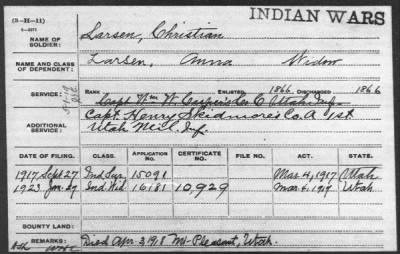 (3-H-11)
6-3277
INDIAN WARS
NAME OF SOLDIER: Larsen, Christian
NAME AND CLASS OF DEPENDENT: Larsen, Anna Widow
SERVICE: RANK ENLISTED 1866 DISCHARGED 1866
Capt Wm W. Co. C. Utah Inf.
ADDITIONAL SERVICE: Capt. Henry Skidmore's Co. A 1st
Utah Mil. Inf.
DATE OF FILING. CLASS. APPLICATION NO. CERTIFICATE NO. FILE NO. ACT. STATE.
1917 Sept 27 Ind Sur. 15098 Mar. 4, 1917 Utah
1923 Jan. 27 Ind. Wid 16181 10,929 Mar. 4, 1917 Utah
BOUNTY LAND:
REMARKS: Died Apr. 3, 1918 Mt. Pleasant, Utah.